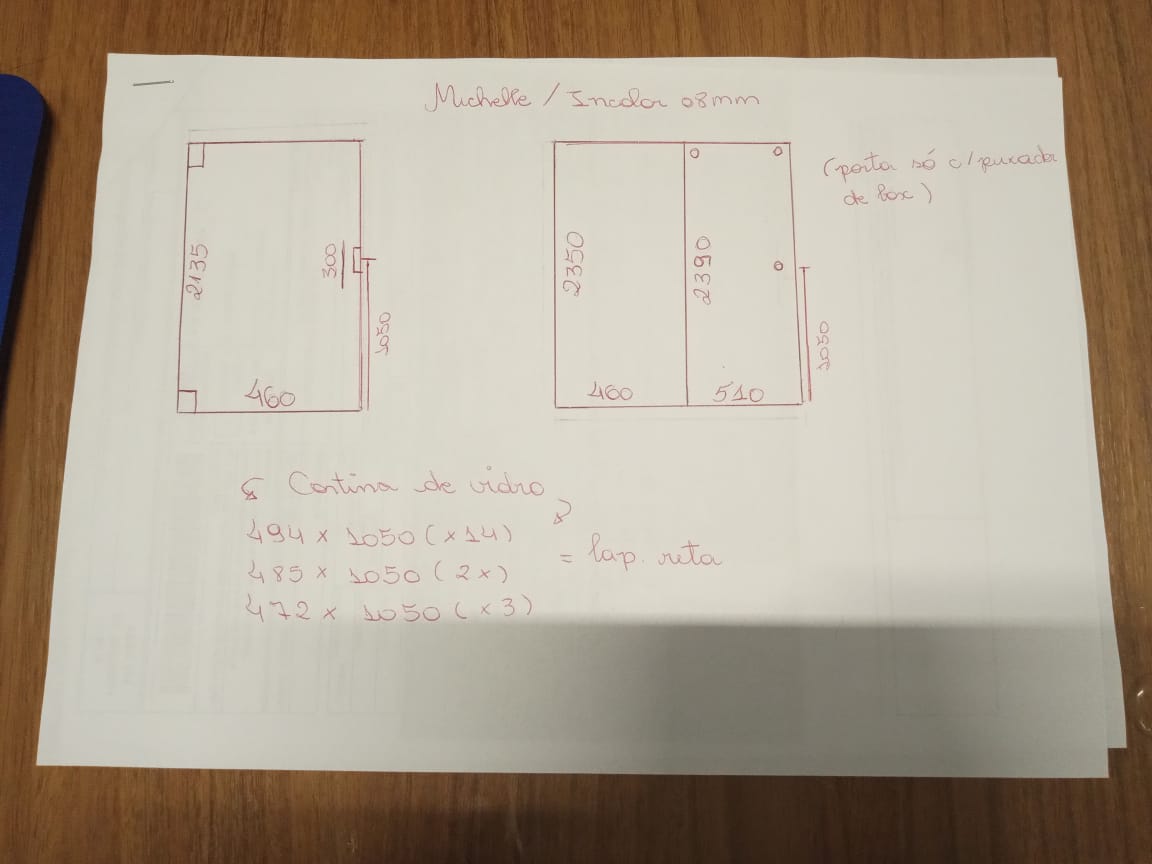 Michelle / Incolor 08mm
2135
300
1050
460
2350
2390
460
510
1050
(porta só c/ puxador
de box)
Cortina de vidro
494 x 1050 (x14)
485 x 1050 (2x)
472 x 1050 (x3)
= lap. reta